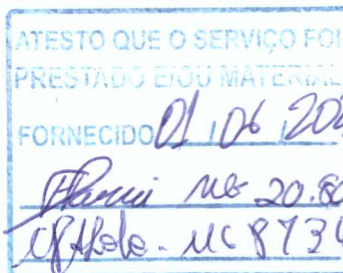 ATESTO QUE O SERVIÇO FOI
PRESTADO E/OU MATERIAL
FORNECIDO 01 / 06 / 202
MG 20.80
MG 8734